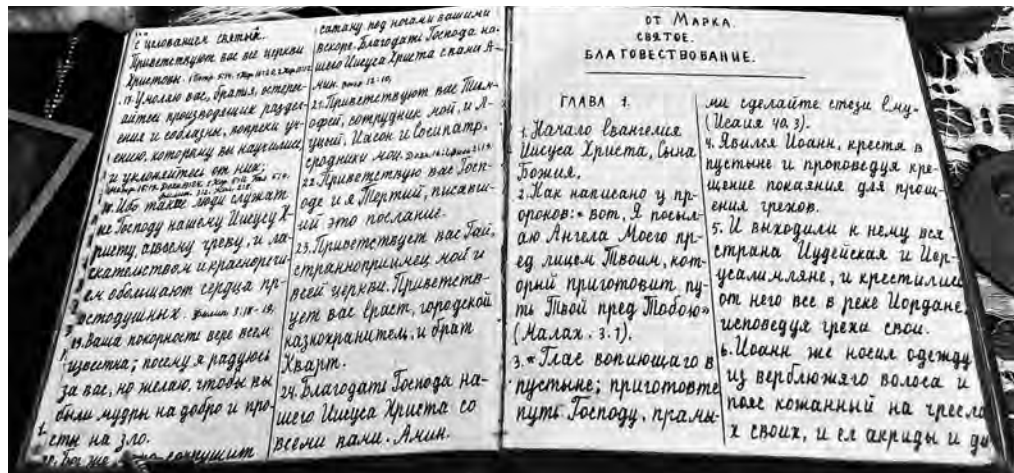 с целованием святым.
Приветствуют вас все церкви
Христовы.
17. Умоляю вас, братия, остере-
айтесь производящих разде-
ение и соблазны, вопреки уч-
ению, которому вы научились
и уклоняйтесь от них;
18. Ибо такие люди служат
не Господу нашему Иисусу Х-
ристу, а своему чреву, и ла-
скательством и красноречи-
ем обольщают сердца пр-
остодушных.
19. Ваша покорность вере всем
известна; посему я радуюсь
за вас, но желаю, чтобы вы
были мудры на добро и про-
сты на зло.
20. Бог же сокрушит
сатану под ногами вашими
вскоре. Благодать Господа на-
шего Иисуса Христа с вами А-
минь.
21. Приветствуют вас Тим-
офей, сотрудник мой, и Л-
уций, Иасон и Сосипатр,
сродники мои.
22. Приветствую вас Госп-
оде и я Тертий, писавш-
ий это послание.
23. Приветствует вас Гай,
странноприимец мой и
всей церкви. Приветств-
ует вас Ераст, городской
казнохранитель, и брат
Кварт.
24. Благодать Господа на-
шего Иисуса Христа со
всеми вами. Аминь.
ОТ МАРКА.
СВЯТОЕ.
БЛАГОВЕСТВОВАНИЕ.
ГЛАВА 1.
1. Начало Евангелия
Иисуса Христа, Сына
Божия,
2. Как написано у пр-
ороков: «вот, Я посыл-
аю Ангела Моего пр-
ед лицем Твоим, кот-
орый приготовит пу-
ть Твой пред Тобою»
(Малах. 3.1).
3. «Глас вопиющаго в
пустыне; приготовьте
путь Господу, прямы-
ми сделайте стези Ему»
(Исаия 40,3).
4. Явился Иоанн, крестя в
пустыне и проповедуя кре-
щение покаяния для прощ-
ения грехов.
5. И выходили к нему вся
страна Иудейская и Иер-
усалимляне, и крестились
от него все в реке Иордане,
исповедуя грехи свои.
6. Иоанн же носил одежду
из верблюжяго волоса и
пояс кожанный на чресла
х своих, и ел акриды и ди